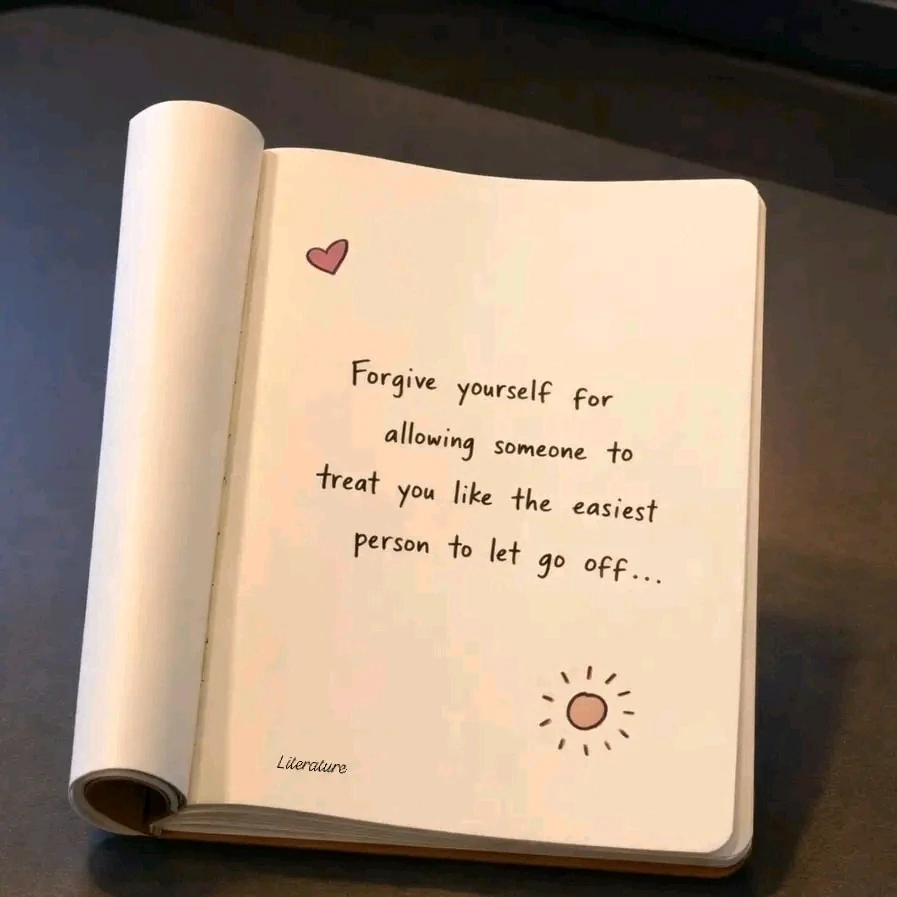 Forgive yourself for
allowing someone to
treat you like the easiest
person to let go off...
Literature